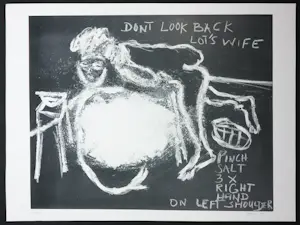 DONT LOOK BACK
LOT'S WIFE
PINCH
SALT
3 X
RIGHT
HAND
ON LEFT SHOULDER